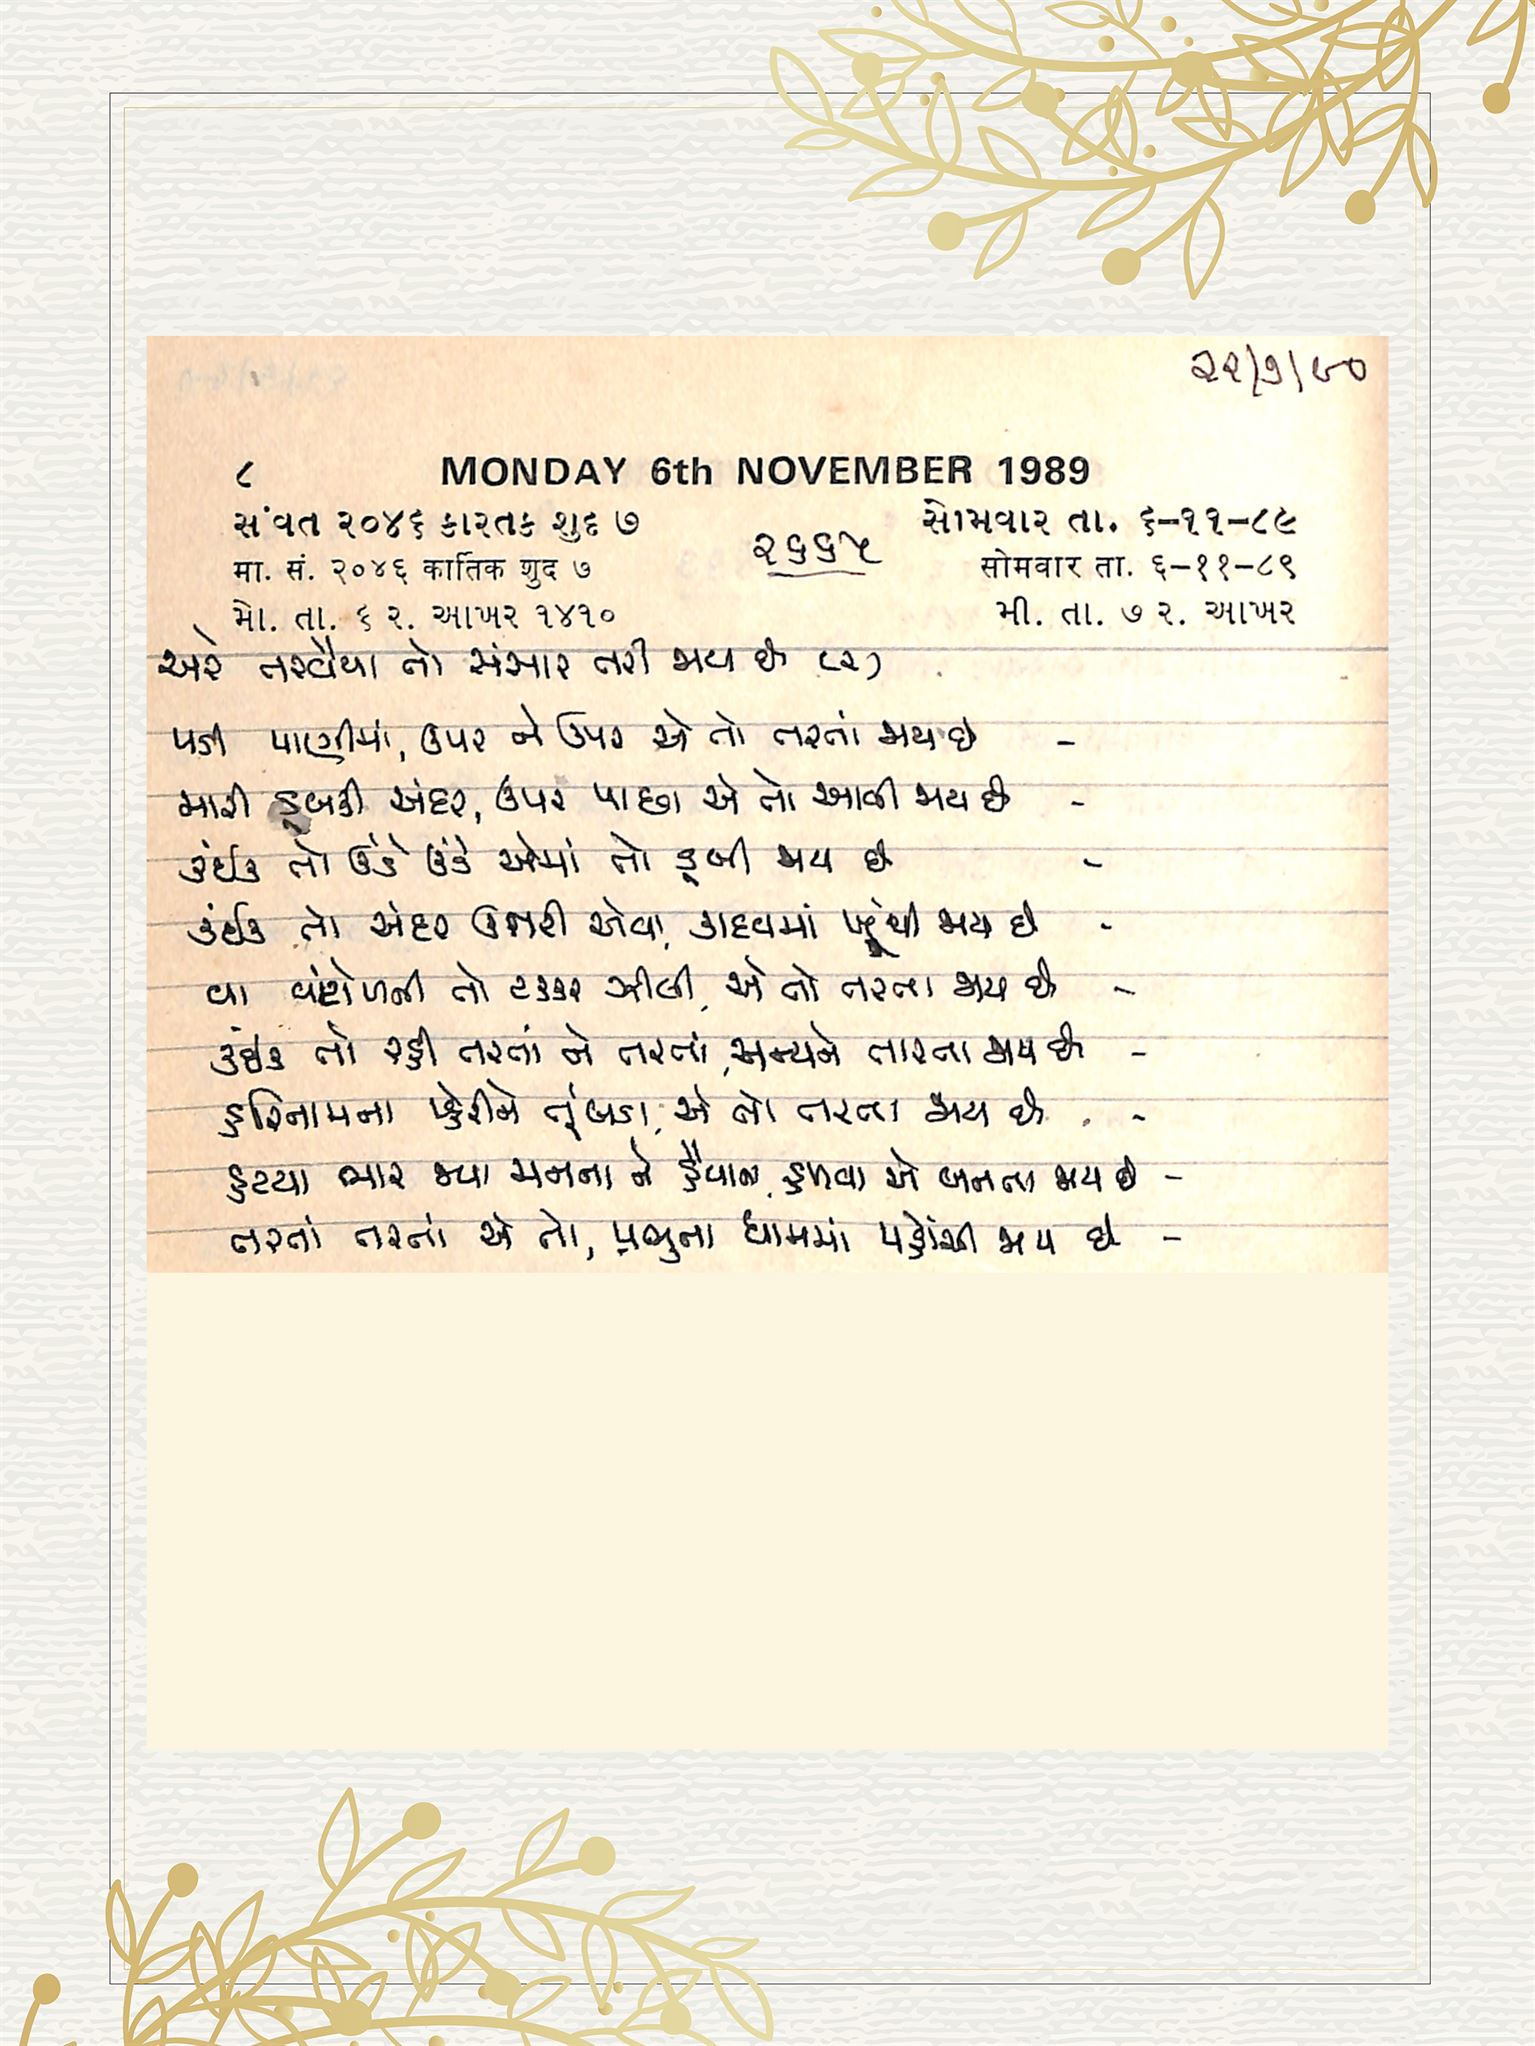 ૨૨/૭/૯૦
૮ MONDAY 6th NOVEMBER 1989
સંવત ૨૦૪૬ કારતક શુદ ૭ ૨૬૬૫ સોમવાર તા. ૬-૧૧-૮૯
मा. सं. २०४६ कार्तिक शुद ७ सोमवार ता. ६-११-८९
મો. તા. ૬ ર. આખર ૧૪૧૦ મી. તા. ૭ ર. આખર
અરે તરવૈયા તો સંસાર તરી જાય છે (૨)
પડી પાણીમાં, ઉપર ને ઉપર એ તો તરતાં જાય છે -
મારી ડૂબકી અંદર, ઉપર પાછા એ તો આવી જાય છે -
કંઈક તો ઉંડે ઉંડે એમાં તો ડૂબી જાય છે -
કંઈક તો અંદર ઉતરી એવા, કાદવમાં ખૂંપી જાય છે -
વા વંટોળની તો ટક્કર ઝીલી, એ તો તરતા જાય છે -
કંઈક તો રહી તરતાં ને તરતાં, અન્યને તારતા જાય છે -
હરિનામના પહેરીને તૂંબડા, એ તો તરતા જાય છે -
હટયા ભાર જ્યા મનના ને હૈયાના, હળવા એ બનતા જાય છે -
તરતાં તરતાં એ તો, પ્રભુના ધામમાં પહોંચી જાય છે -